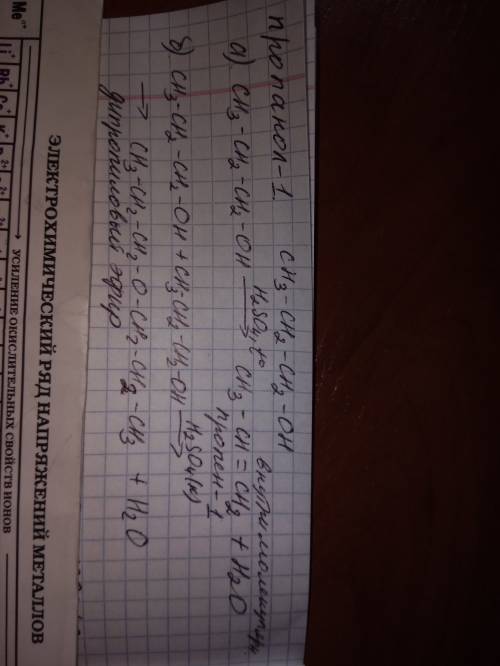 пропанол-1 CH3-CH2-CH2-OH
внутримолекуляр
а) CH3-CH2-CH2-OH H2SO4, t° → CH3-CH=CH2 + H2O
пропен-1
б) CH3-CH2-CH2-OH + CH3-CH2-CH2OH H2SO4(к) →
→ CH3-CH2-CH2-O-CH2-CH2-CH3 + H2O
дипропиловый эфир
ЭЛЕКТРОХИМИЧЕСКИЙ РЯД НАПРЯЖЕНИЙ МЕТАЛЛОВ
УСИЛЕНИЕ ОКИСЛИТЕЛЬНЫХ СВОЙСТВ ИОНОВ
Li Rb K
Me